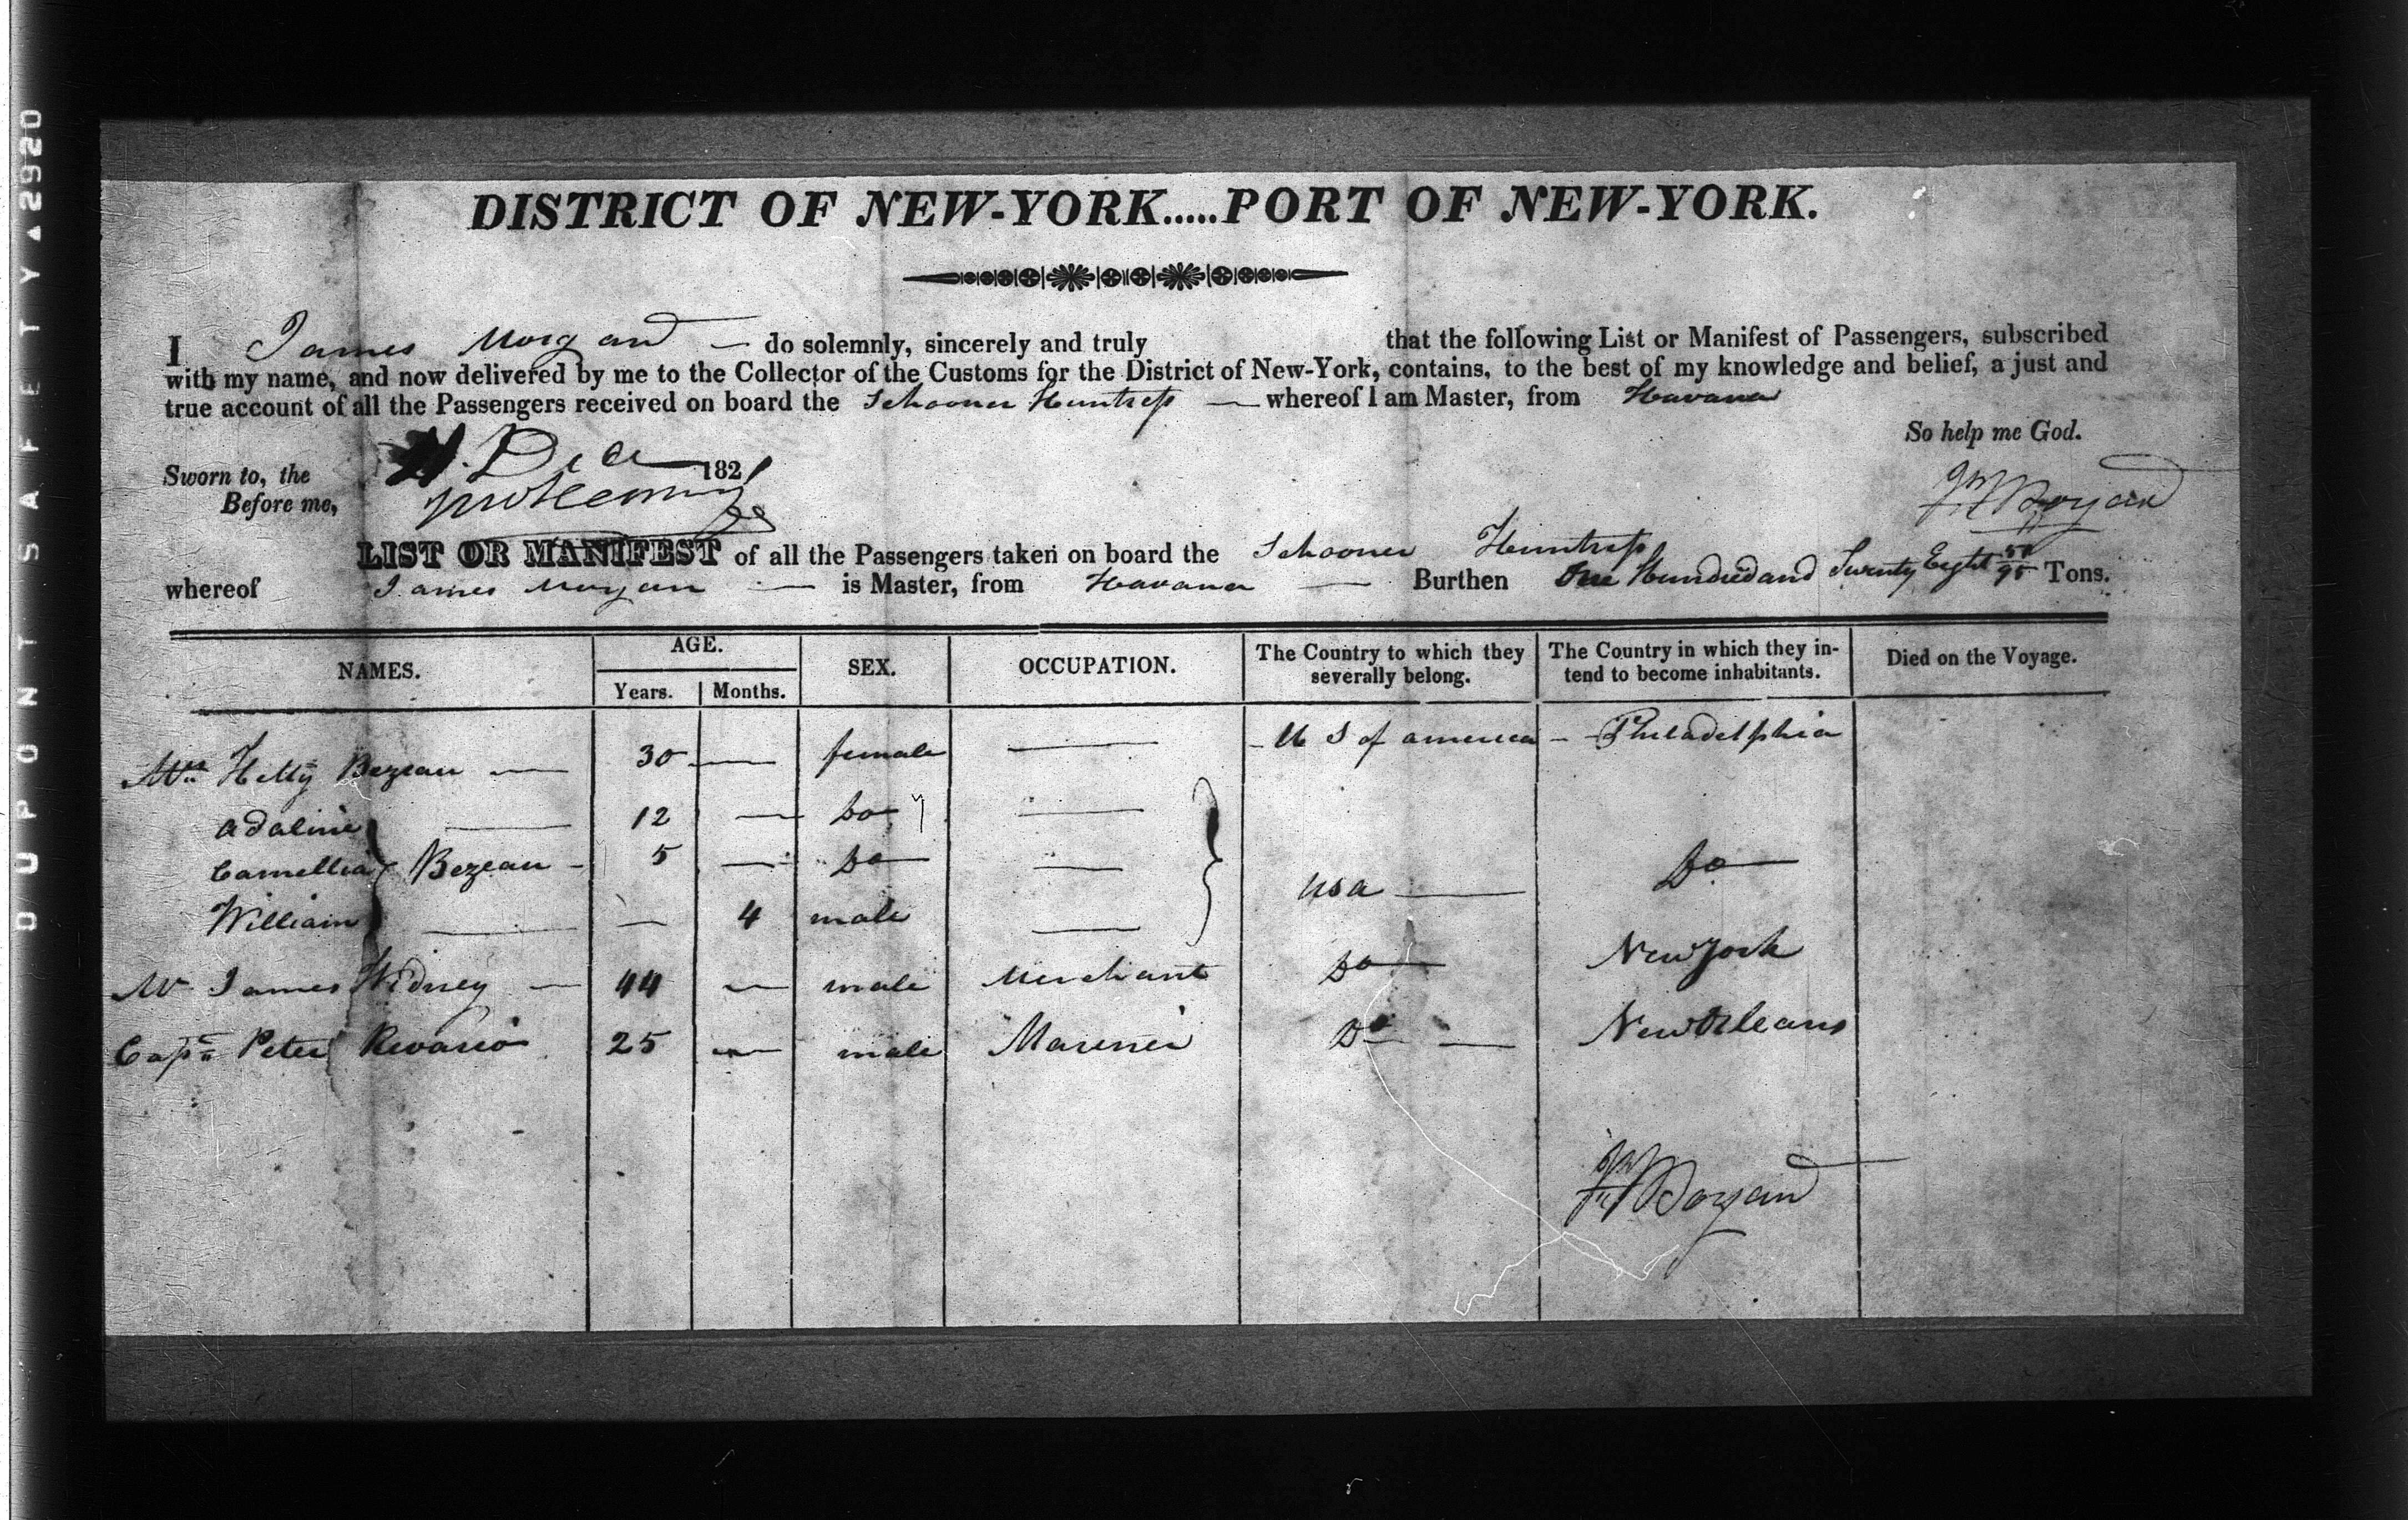 DUPONT SAFETY ▲2920
DISTRICT OF NEW-YORK.....PORT OF NEW-YORK.
I James Morgan do solemnly, sincerely and truly that the following List or Manifest of Passengers, subscribed
with my name, and now delivered by me to the Collector of the Customs for the District of New-York, contains, to the best of my knowledge and belief, a just and
true account of all the Passengers received on board the Schooner Huntress — whereof I am Master, from Havana
So help me God.
Sworn to, the Dec 1821
Before me,
Jas Morgan
LIST OR MANIFEST of all the Passengers taken on board the Schooner Huntress
whereof James Morgan — is Master, from Havana — Burthen One Hundred and Twenty Eight 50/95 Tons.
NAMES. AGE. Years. Months. SEX. OCCUPATION. The Country to which they severally belong. The Country in which they intend to become inhabitants. Died on the Voyage.
Mrs Hetty Bezeau — 30 — female — U S of america — Philadelphia
Adaline — 12 — Do —
Camellia Bezeau — 5 — Do — usa — Do
William — — 4 male —
Mr James Widney — 44 — male Merchant Do New York
Captn Peter 25 — male Mariner Do — New Orleans
Jas Morgan